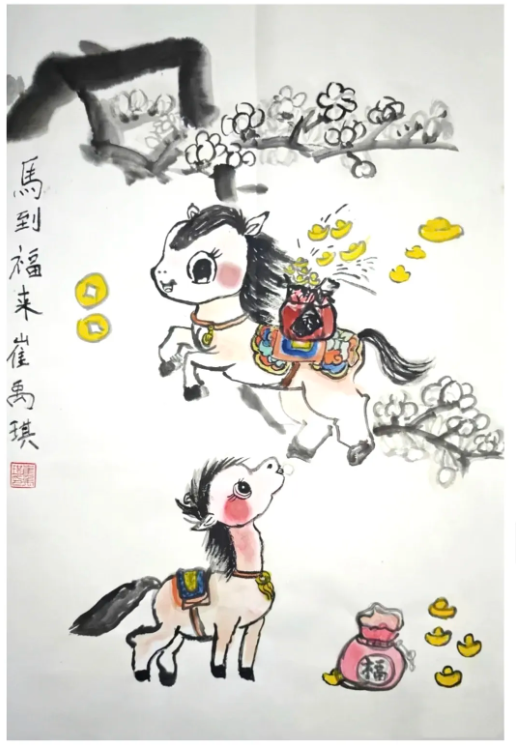 馬到福来 崔禹琪
福